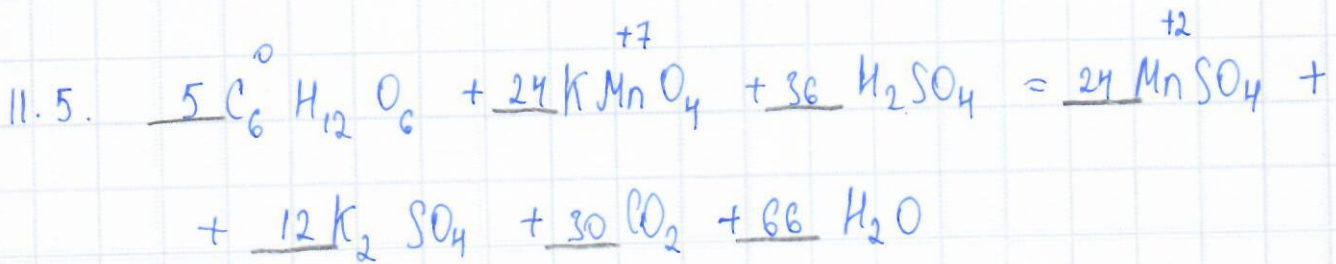 11.5. 5 C₆⁰ H₁₂ O₆ + 24 K Mn⁺⁷ O₄ + 36 H₂SO₄ = 24 Mn⁺² SO₄ +
+ 12 K₂ SO₄ + 30 CO₂ + 66 H₂O